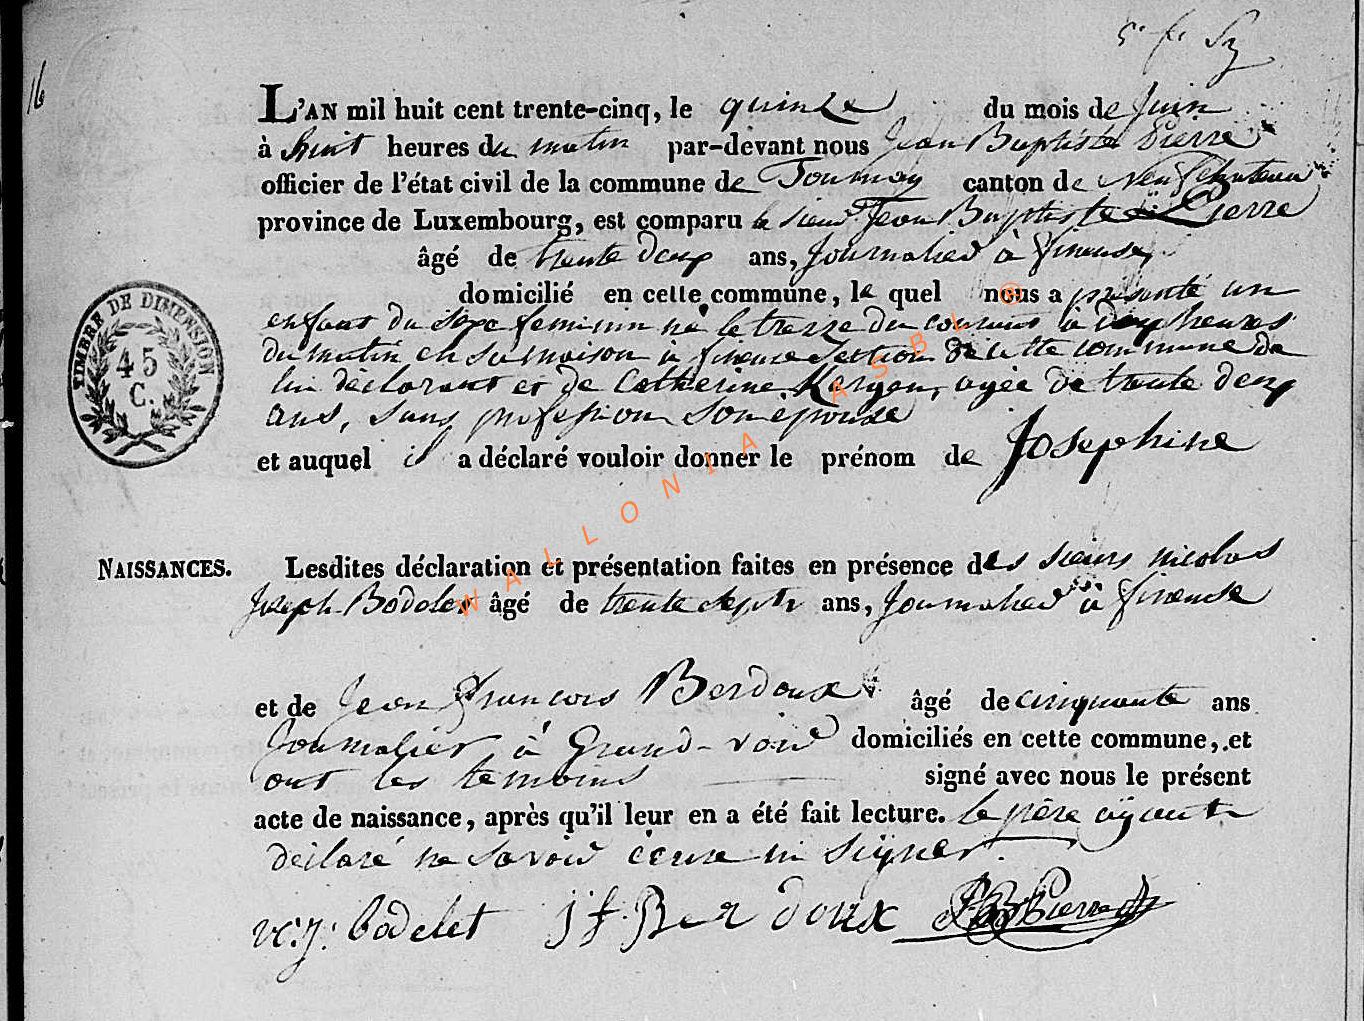 16
L'AN mil huit cent trente-cinq, le quinze du mois de Juin
à huit heures du matin par-devant nous Jean Baptiste Pierre
officier de l'état civil de la commune de Tournay canton de neufchateau
province de Luxembourg, est comparu le sieur Jean Baptiste Pierre
âgé de trente deux ans, Journalier à fineuse
domicilié en cette commune, le quel nous a présenté un
enfant du sexe feminin né le treize du courant à deux heures
du matin en sa maison à fineuse section de cette commune de
lui déclarant et de Catherine agée de trente deux
ans, sans profession son épouse
et auquel il a déclaré vouloir donner le prénom de Josephine
TIMBRE DE DIMENSION
45
C.
NAISSANCES. Lesdites déclaration et présentation faites en présence des sieurs nicolas
Joseph Bodelet âgé de trente sept ans, Journalier à fineuse
et de Jean François Berdoux âgé de cinquante ans
Journalier à Grand-voir domiciliés en cette commune, et
ont les temoins signé avec nous le présent
acte de naissance, après qu'il leur en a été fait lecture. le père ayant
déclaré ne savoir écrire ni signer.
nc: j: bodelet J f. Berdoux JB Pierre
WALLONIA ASBL ®